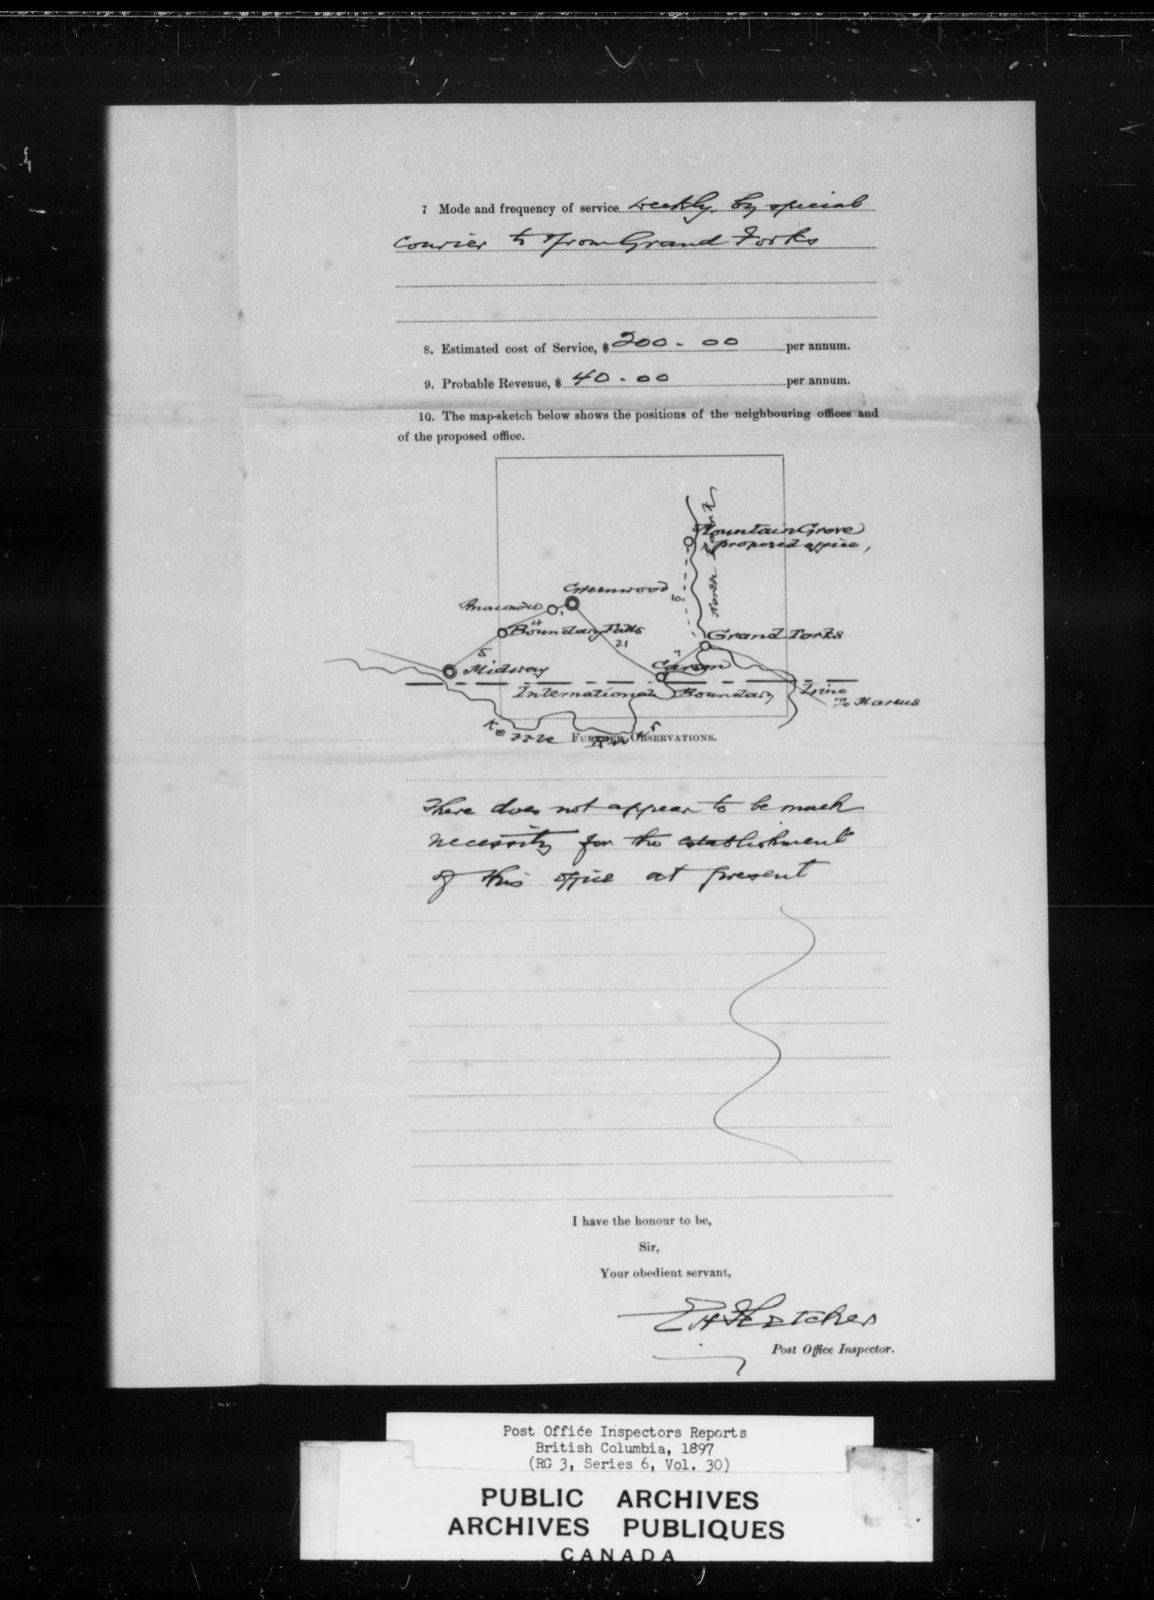 7 Mode and frequency of service weekly by special
courier to & from Grand Forks
8. Estimated cost of Service, $ 200.00 per annum.
9. Probable Revenue, $ 40.00 per annum.
10. The map-sketch below shows the positions of the neighbouring offices and
of the proposed office.
Mountain Grove
proposed office,
North Fork
10.
Greenwood
Anaconda
1
4
Boundary Falls
Grand Forks
21
7
5
Midway
Carson
International Boundary Line
to Marcus
Kettle River
FURTHER OBSERVATIONS.
There does not appear to be much
necessity for the establishment
of this office at present
I have the honour to be,
Sir,
Your obedient servant,
E H Fletcher
Post Office Inspector.
Post Office Inspectors Reports
British Columbia, 1897
(RG 3, Series 6, Vol. 30)
PUBLIC ARCHIVES
ARCHIVES PUBLIQUES
CANADA